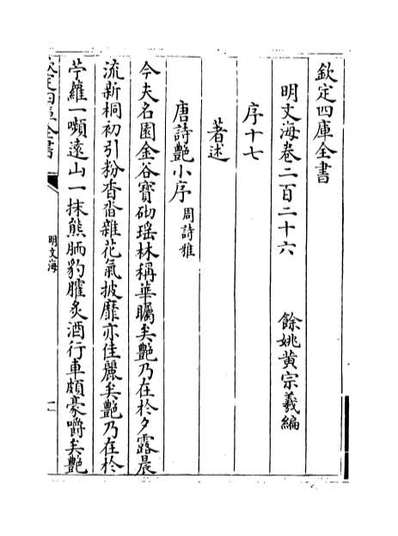 欽定四庫全書
明文海卷二百二十六
餘姚黃宗羲編
序十七
著述
唐詩艷小序 周詩雅
今夫名園金谷寶砌瑶林稱華矚矣艷乃在於夕露晨
流新桐初引粉香沓雜花氣披靡亦佳麗矣艷乃在於
苧羅一嚬遠山一抹熊胹豹臛炙酒行車頗豪嚼矣艷
欽定四庫全書
明文海